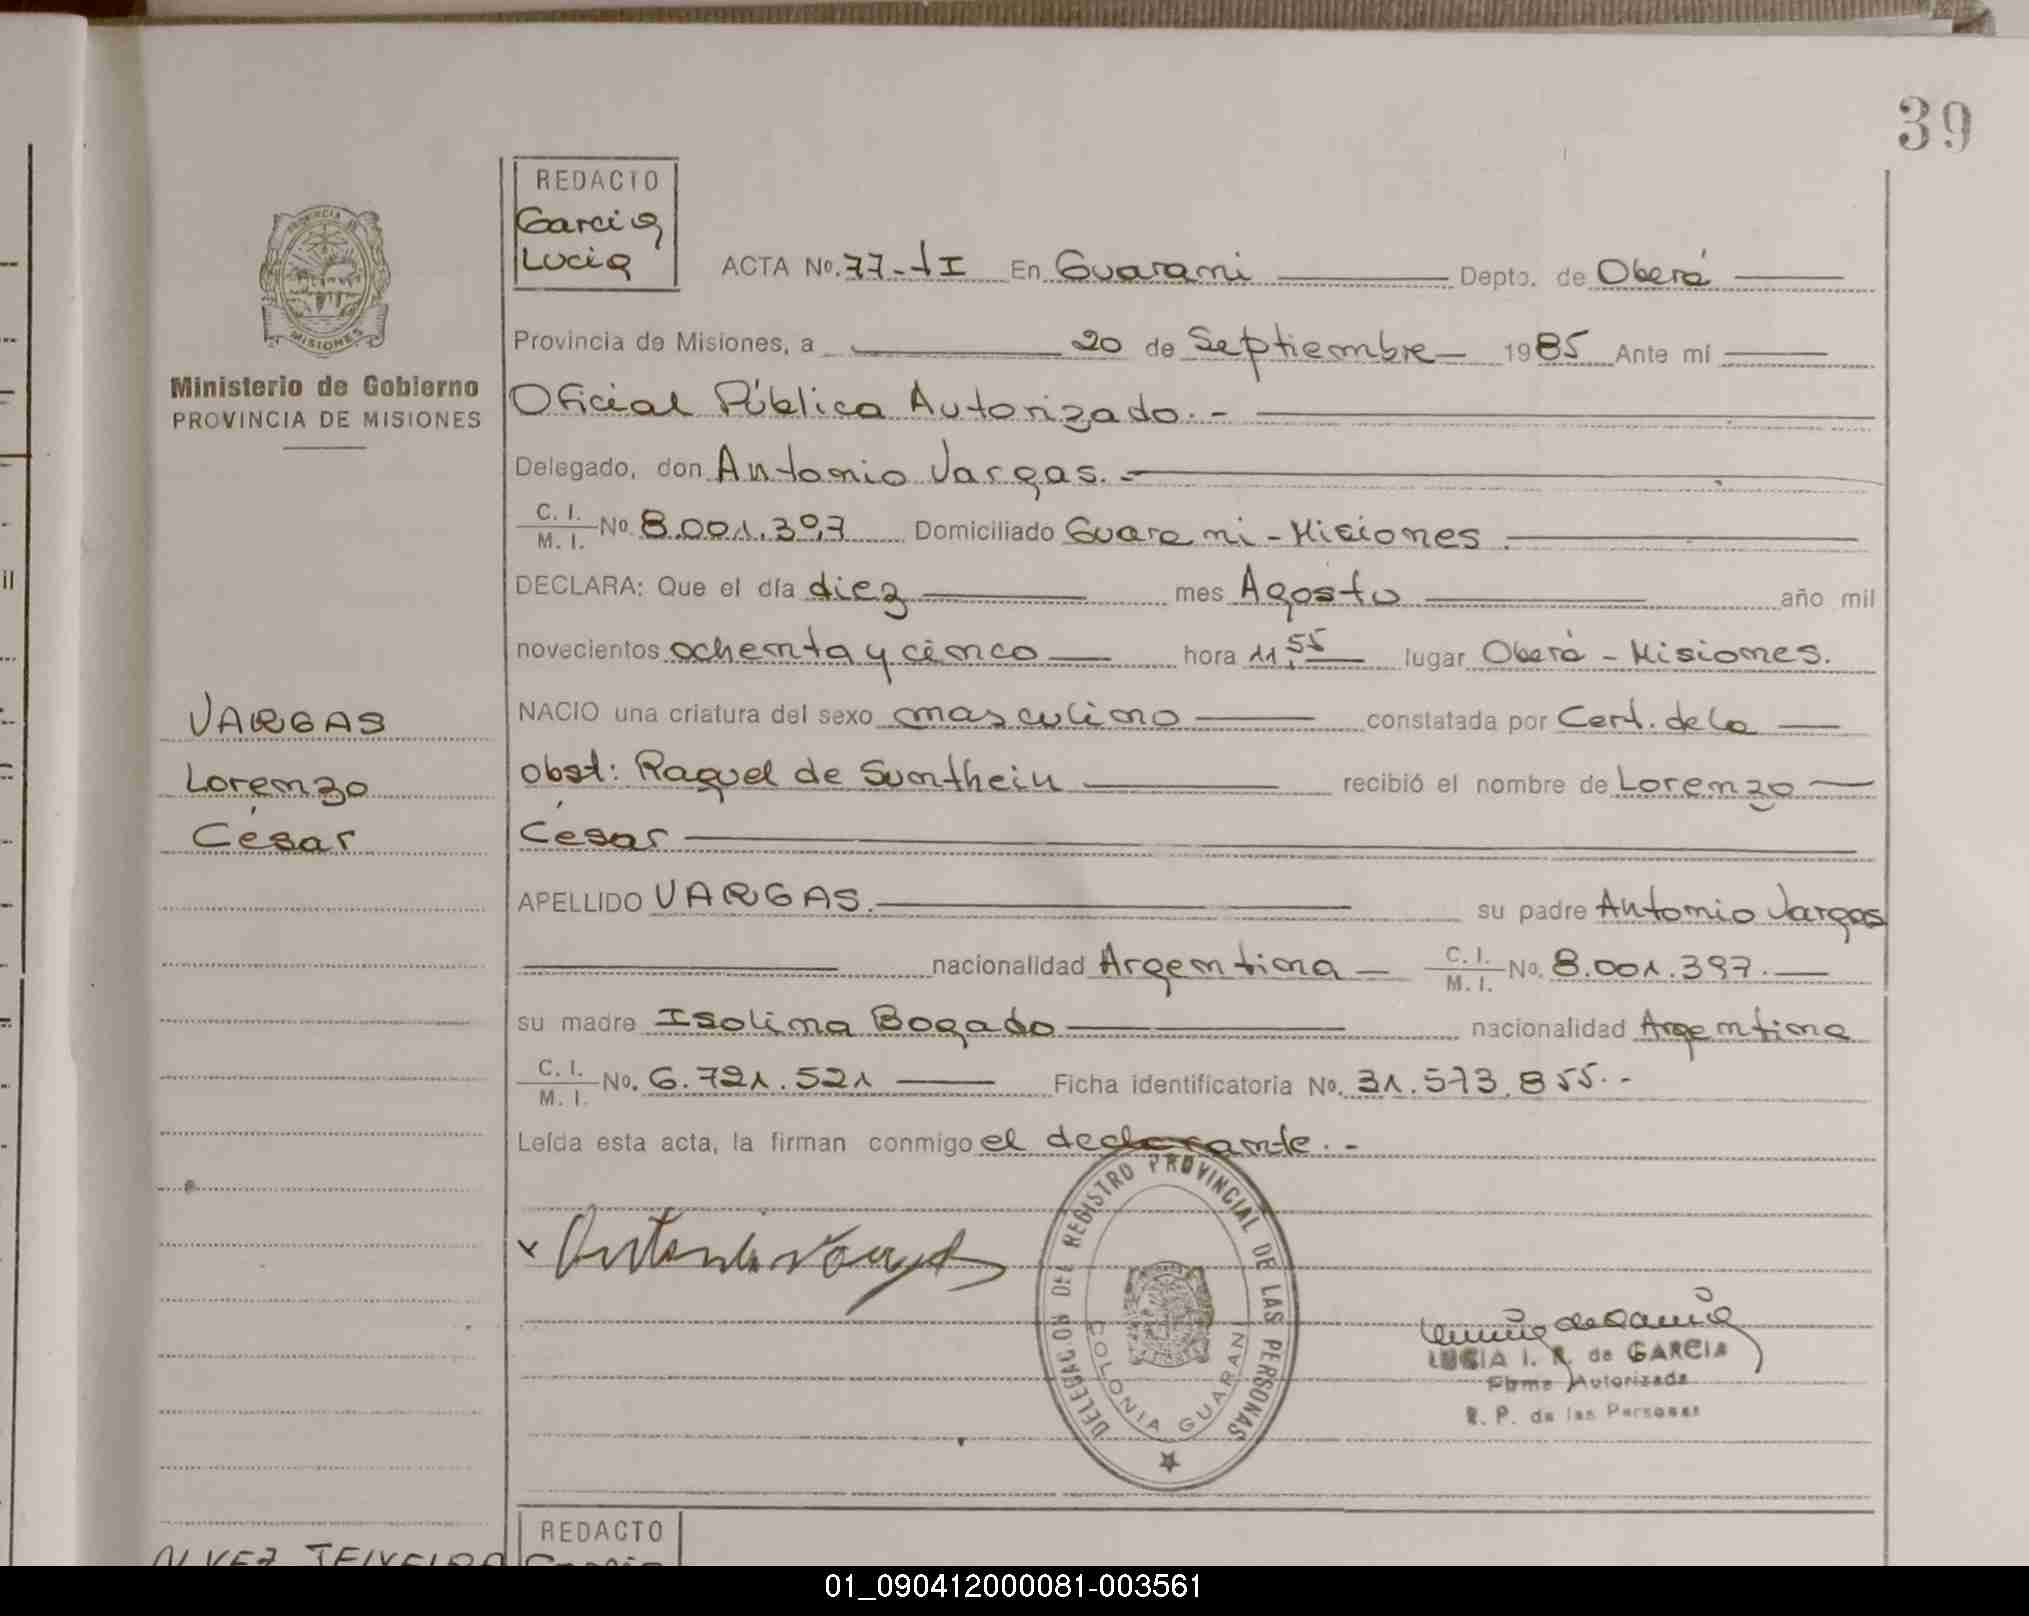 39
REDACTO
Garcia
Lucia
ACTA No. 77-tI En Guarani Depto. de Oberá
PROVINCIA DE
MISIONES
Ministerio de Gobierno
PROVINCIA DE MISIONES
Provincia de Misiones, a 20 de Septiembre 1985 Ante mí
Oficial Pública Autorizado.-
Delegado, don Antonio Vargas.-
C. I. / M. I. No. 8.001.397 Domiciliado Guarani - Misiones.
DECLARA: Que el día diez mes Agosto año mil
novecientos ochenta y cinco hora 11,55 lugar Oberá - Misiones.
VARGAS
Lorenzo
César
NACIO una criatura del sexo masculino constatada por Cert. de la
obst: Raquel de Sunthein recibió el nombre de Lorenzo
César
APELLIDO VARGAS. su padre Antonio Vargas
nacionalidad Argentina C. I. / M. I. No. 8.001.397.
su madre Isolina Bogado nacionalidad Argentina
C. I. / M. I. No. 6.721.521 Ficha identificatoria No. 31.573.855.-
Leída esta acta, la firman conmigo el declarante.-
x Antonio Vargas
DELEGACION DEL REGISTRO PROVINCIAL DE LAS PERSONAS
COLONIA GUARANI
LUCIA I. R. de GARCIA
Firma Autorizada
R. P. de las Personas
REDACTO
ALVEZ TEIXEIRA
01_090412000081-003561